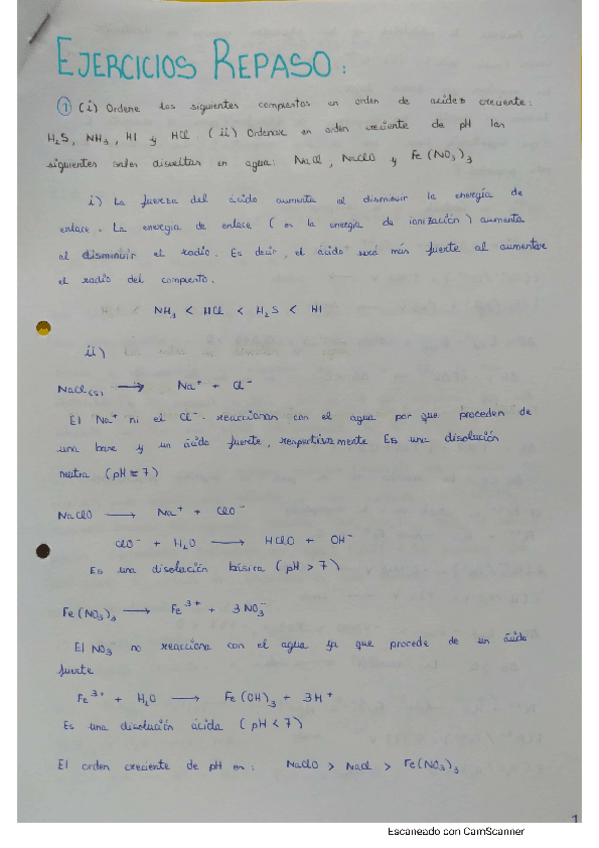 EJERCICIOS REPASO:
① (i) Ordene los siguientes compuestos en orden de acidez creciente:
H₂S, NH₃, HI y HCl (ii) Ordenar en orden creciente de pH las
siguientes sales disueltas en agua: NaCl, NaClO y Fe(NO₃)₃
i) La fuerza del ácido aumenta al disminuir la energía de
enlace. La energía de enlace (es la energía de ionización) aumenta
al disminuir el radio. Es decir, el ácido será más fuerte al aumentar
el radio del compuesto.
NH₃ < HCl < H₂S < HI
ii)
NaCl(s) → Na⁺ + Cl⁻
El Na⁺ ni el Cl⁻ reaccionan con el agua por que proceden de
una base y un ácido fuerte, respectivamente Es una disolución
neutra (pH = 7)
NaClO → Na⁺ + ClO⁻
ClO⁻ + H₂O → HClO + OH⁻
Es una disolución básica (pH > 7)
Fe(NO₃)₃ → Fe³⁺ + 3NO₃⁻
El NO₃⁻ no reacciona con el agua ya que procede de un ácido
fuerte
Fe³⁺ + H₂O → Fe(OH)₃ + 3H⁺
Es una disolución ácida (pH < 7)
El orden creciente de pH es: NaClO > NaCl > Fe(NO₃)₃
1
Escaneado con CamScanner